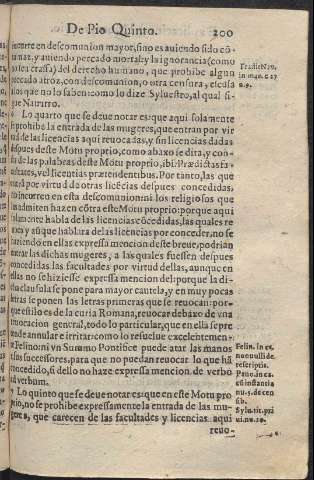 De Pio Quinto. 200
incurre en descomunion mayor, sino es auiendo sido cõ
tumaz, y auiendo pecado mortal, y la ignorancia (como
sea crassa) del derecho humano, que prohibe algun
pecado atroz, con descomunion, o otra censura, escusa
los que no lo saben: como lo dize Syluestro, al qual si-
gue Nauarro.
Lo quarto que se deue notar es: que aqui solamente
se prohibe la entrada de las mugeres, que entran por vir
tud de las licencias aqui reuocadas, y sin licencias dadas
despues deste Motu proprio, como abaxo se dira, y cons
ta de las palabras deste Motu proprio, ibi: Prædictas fa-
cultates, vel licentias prætendentibus. Por tanto, las que
entrarã por virtud da otras licẽcias despues concedidas,
no incurren en esta descomunion: ni los religiosos que
las admiten hazen cõtra este Motu proprio: porque aqui
solamente habla de las licencias cõcedidas, las quales re
uoca y aũque hablara de las licẽcias por conceder, no se
haziendo en ellas expressa mencion deste breue, podrian
entrar las dichas mugeres, a las quales fuessen despues
concedidas las facultades por virtud dellas, aunque en
ellas no se hiziesse expressa mencion del: porque la di-
cha clausula se pone para mayor cautela, y en muy pocas
letras se ponen las letras primeras que se reuocan: por-
que estilo es de la curia Romana, reuocar debaxo de vna
reuocacion general, todo lo particular, que en ella se pre
tende annular e irritar: como lo resuelue excelentemen-
te Felino: ni vn Summo Pontifice puede atar las manos
a sus successores, para que no puedan reuocar lo que hã
concedido, si dello no haze expressa mencion de verbo
ad verbum.
Lo quinto que se deue notar es: que en este Motu pro
prio, no se prohibe expressamente la entrada de las mu-
geres, que carecen de las facultades y licencias aqui
reuo-
Tradit Nau.
in man. c. 27
n. 9.
Felin. in ca.
non nulli de
rescriptis.